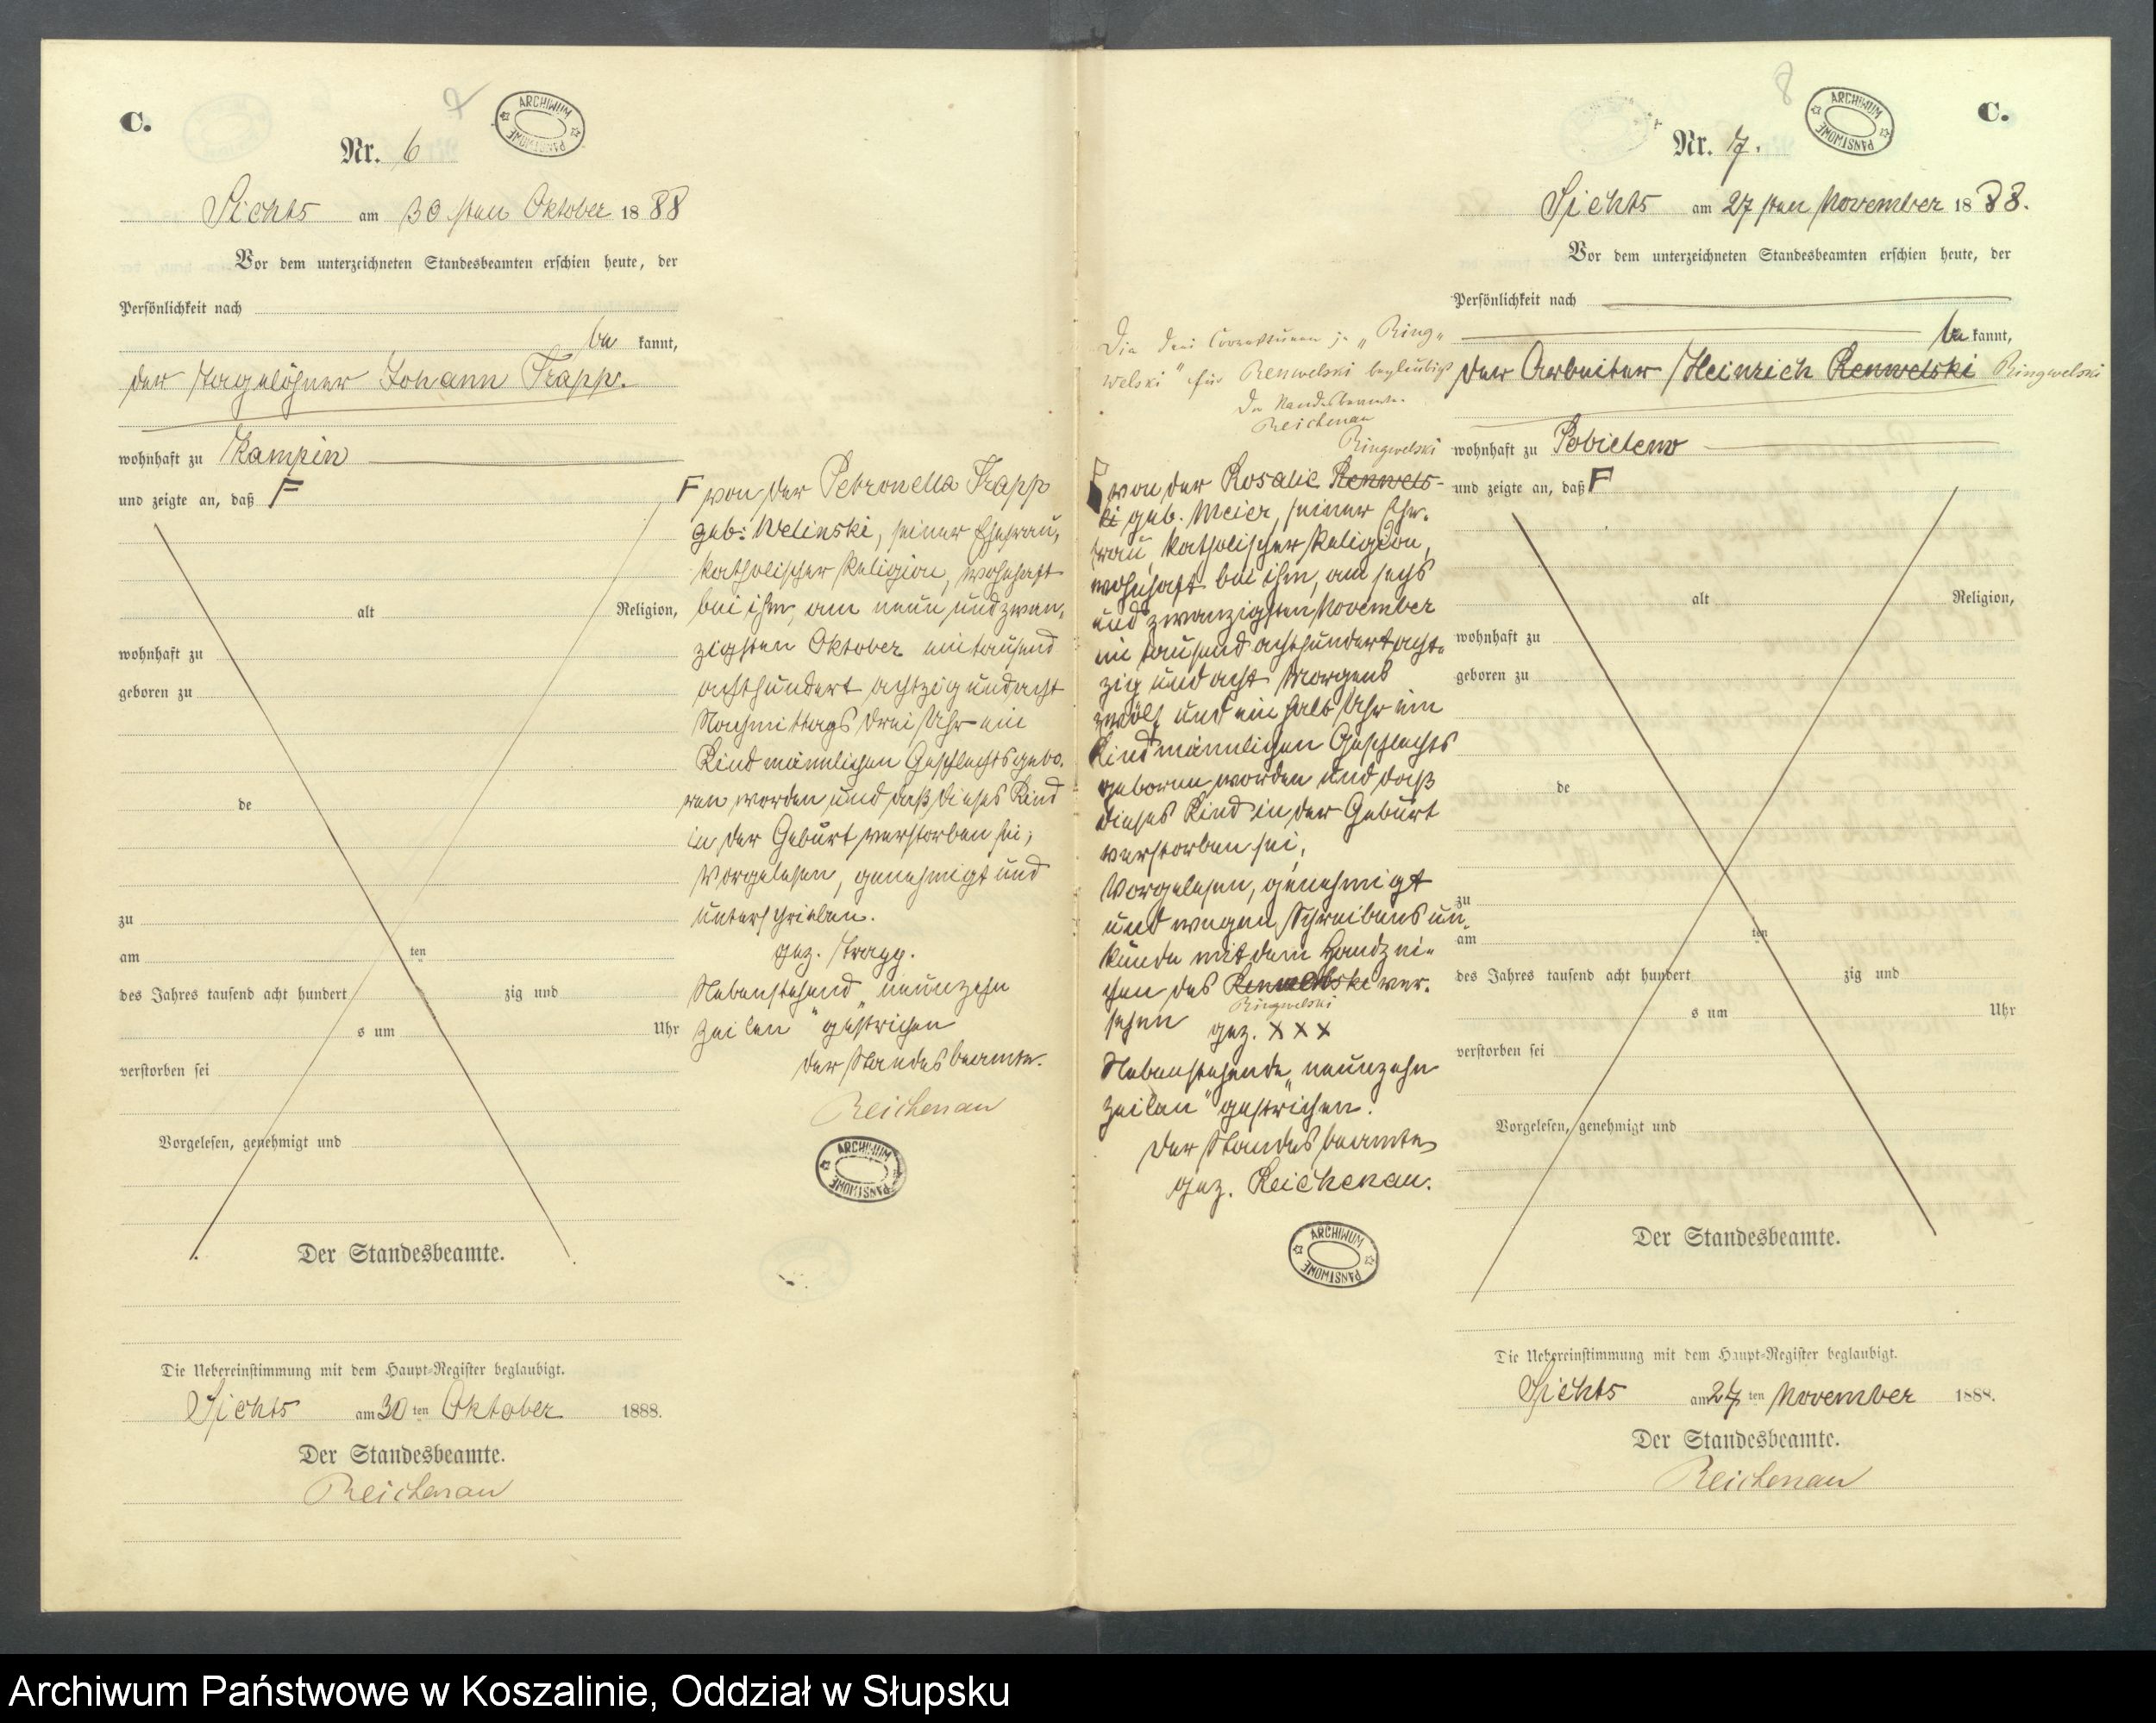 C.
7
ARCHIWUM PAŃSTWOWE
Nr. 6
Sichts am 30 sten Oktober 18 88
Vor dem unterzeichneten Standesbeamten erschien heute, der
Persönlichkeit nach
be kannt,
der Tagelöhner Johann Trapp.
wohnhaft zu Kampin
und zeigte an, daß F
alt Religion,
wohnhaft zu
geboren zu
de
zu
am ten
des Jahres tausend acht hundert zig und
s um Uhr
verstorben sei
Vorgelesen, genehmigt und
Der Standesbeamte.
Die Uebereinstimmung mit dem Haupt-Register beglaubigt.
Sichts am 30 ten Oktober 1888.
Der Standesbeamte.
Reichenau
F von der Petronella Trapp
geb: Welinski, seiner Ehefrau,
katholischer Religion, wohnhaft
bei ihm, am neun und zwan-
zigsten Oktober eintausend
achthundert achtzig und acht
Nachmittags drei Uhr ein
Kind männlichen Geschlechts gebo-
ren worden und daß dieses Kind
in der Geburt verstorben sei,
Vorgelesen, genehmigt und
unterschrieben.
gez. Trapp.
Nebenstehend "neunzehn
Zeilen" gestrichen
der Standesbeamte.
Reichenau
ARCHIWUM PAŃSTWOWE
8
ARCHIWUM PAŃSTWOWE
C.
Nr. 7.
Sichts am 27 sten November 18 88.
Vor dem unterzeichneten Standesbeamten erschien heute, der
Persönlichkeit nach
be kannt,
der Arbeiter Heinrich Renwelski Ringwelski
wohnhaft zu Pobielewo
und zeigte an, daß F
alt Religion,
wohnhaft zu
geboren zu
de
zu
am ten
des Jahres tausend acht hundert zig und
s um Uhr
verstorben sei
Vorgelesen, genehmigt und
Der Standesbeamte.
Die Uebereinstimmung mit dem Haupt-Register beglaubigt.
Sichts am 27 ten November 1888.
Der Standesbeamte.
Reichenau
Die drei Correkturen je "Ring-
welski" für Renwelski beglaubigt
Der Standesbeamte.
Reichenau
Ringwelski
F von der Rosalie Renwels-
ki geb. Meier, seiner Ehe-
frau, katholischer Religion,
wohnhaft bei ihm, am sechs
und zwanzigsten November
ein tausend achthundert acht-
zig und acht Morgens
zwölf und ein halb Uhr ein
Kind männlichen Geschlechts
geboren worden und daß
dieses Kind in der Geburt
verstorben sei,
Vorgelesen, genehmigt
und wegen Schreibens un-
kunde mit dem Handzei-
chen des Renwelski ver-
Ringwelski
sehen gez. XXX
Nebenstehende "neunzehn
Zeilen" gestrichen.
Der Standesbeamte
gez. Reichenau.
ARCHIWUM PAŃSTWOWE
Archiwum Państwowe w Koszalinie, Oddział w Słupsku